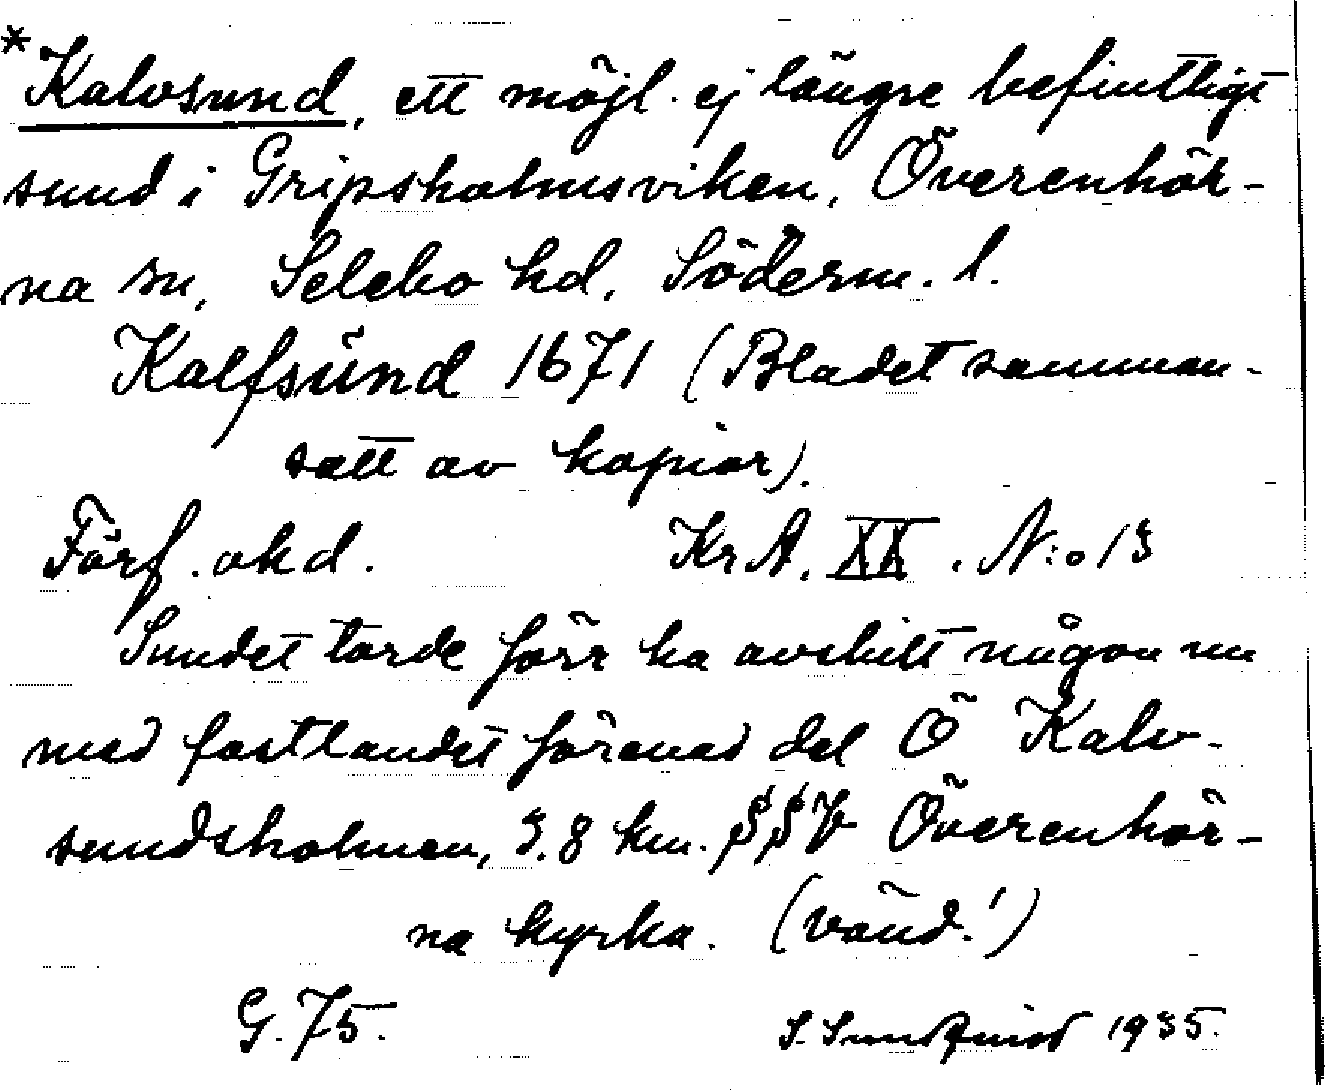 *Kalvsund, ett möjl. ej längre befintligt
sund i Gripsholmsviken, Överenhör-
na sn, Selebo hd, Söderm. l.
Kalfsünd 1671 (Bladet samman-
satt av kopior).
Förf. okd. KrA. XX. N:o 13
Sundet torde förr ha avskilt någon nu
med fastlandet förenad del Ö Kalv-
sundsholmen, 3.8 km. SSV Överenhör-
na kyrka. (vänd!)
G. 75. S. Sundquist 1935.